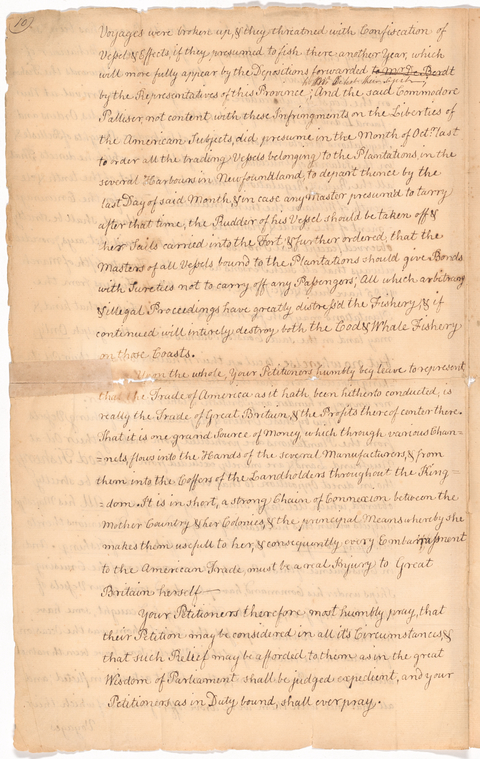 10/
Voyages were broken up, & they threatned with Confiscation of
Vessel & Effects, if they presumed to fish there another Year, which
will more fully appear by the Depositions forwarded to Mr. De Berdt
by the Representatives of this Province; And the said Commodore
Palliser, not content with these Infringments on the Liberties of
the American Subjects, did presume in the Month of Octr. last
to order all the trading Vessels belonging to the Plantations, in the
several Harbours in Newfoundland, to depart thence by the
last Day of said Month, & in case any Master presum'd to tarry
after that time, the Rudder of his Vessel should be taken off &
her Sails carried into the Fort, & further ordered, that the
Masters of all Vessels bound to the Plantations should give Bonds
with Sureties not to carry off any Passengers; All which arbitrary
& illegal Proceedings have greatly distress'd the Fishery, & if
continued will intirely destroy both the Cod & Whale Fishery
on those Coasts.
Upon the whole, Your Petitioners humbly beg leave to represent
that the Trade of America as it hath been hitherto conducted, is
really the Trade of Great Britain, & the Profits thereof center there.
That it is one grand Source of Money, which through various Chan=
=nels, flows into the Hands of the several Manufacturers, & from
them into the Coffers of the Landholders throughout the King=
=dom. It is in short, a strong Chain of Connexion between the
Mother Country & her Colonies, & the principal Means whereby she
makes them usefull to her, & consequently every Embarrassment
to the American Trade, must be a real Injury to Great
Britain herself
Your Petitioners therefore most humbly pray, that
their Petition may be considered in all it's Circumstances, &
that such Relief may be afforded to them as in the great
Wisdom of Parliament shall be judged expedient, and your
Petitioners as in Duty bound, shall ever pray.